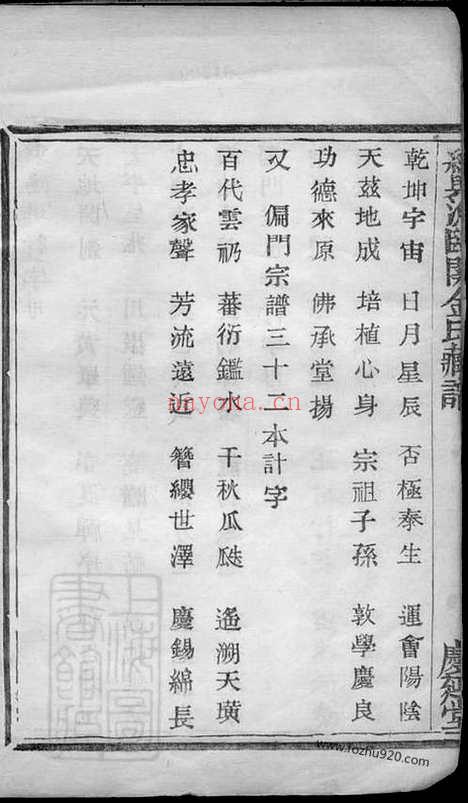 紹興 金氏藏譜
慶
乾坤宇宙 日月星辰 否極泰生 運會陽陰
天茲地成 培植心身 宗祖子孫 敦學慶良
功德來原 佛承堂揚
又 偏門宗譜三十二本計字
百代雲礽 蕃衍鑑水 千秋瓜瓞 遙溯天璜
忠孝家聲 芳流遠近 簪纓世澤 慶錫綿長
nayoua.cn
www.fozhu920.com